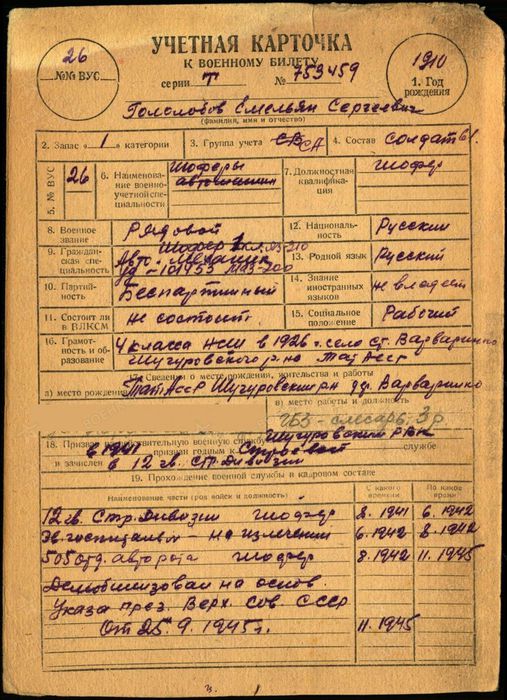 УЧЕТНАЯ КАРТОЧКА
К ВОЕННОМУ БИЛЕТУ
серии Т № 753459
26
№№ ВУС
1910
1. Год
рождения
Гололобов Емельян Сергеевич
(фамилия, имя и отчество)
2. Запас «1» категории
3. Группа учета СА
4. Состав солдаты
5. № ВУС 26
6. Наименование военно-учетной специальности шоферы
7. Должностная квалификация шофер
8. Военное звание Рядовой
12. Национальность Русский
9. Гражданская специальность шофер 1 кл. ЯЗ-210
Авт.-механик
уд-101953 МАЗ-200
13. Родной язык Русский
10. Партийность Беспартийный
14. Знание иностранных языков не владеет
11. Состоит ли в ВЛКСМ не состоит
15. Социальное положение Рабочий
16. Грамотность и образование 4 класса НСШ в 1926 г. село ст. Варварино
Шугуровского р-на ТатАССР
17. Сведения о месте рождения, жительства и работы
а) место рождения ТатАССР Шугуровский р-н д. Варварино
в) место работы и должность
слесарь 3р
18. Признан к действительной военную службу Шугуровским РВК
6 1941 признан годным к строевой службе
и зачислен в 12 гв. стр. дивизии
19. Прохождение военной службы в кадровом составе
Наименование части (род войск и должность)
С какого времени
По какое время
12 гв. Стр. Дивизии шофер 8. 1941 6. 1942
Эв. госпиталь - на излечении 6. 1942 8. 1942
505 отд. авторота шофер 8. 1942 11. 1945
Демобилизован на основ.
Указа през. Верх. Сов. СССР
От 25. 9. 1945 г. 11. 1945